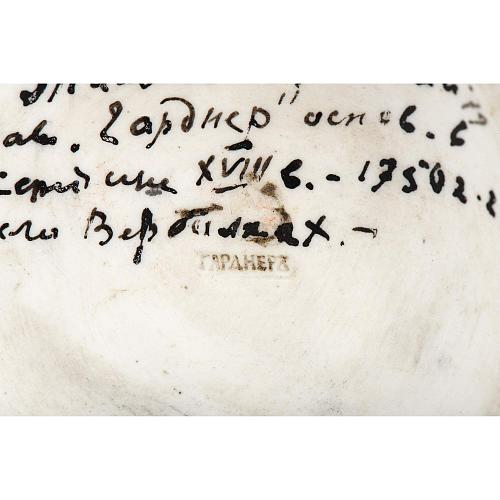 ав. „Гарднер" основ. в
середине XVIII в. - 1750 г.г
село Вербилках. -
ГАРДНЕРЪ